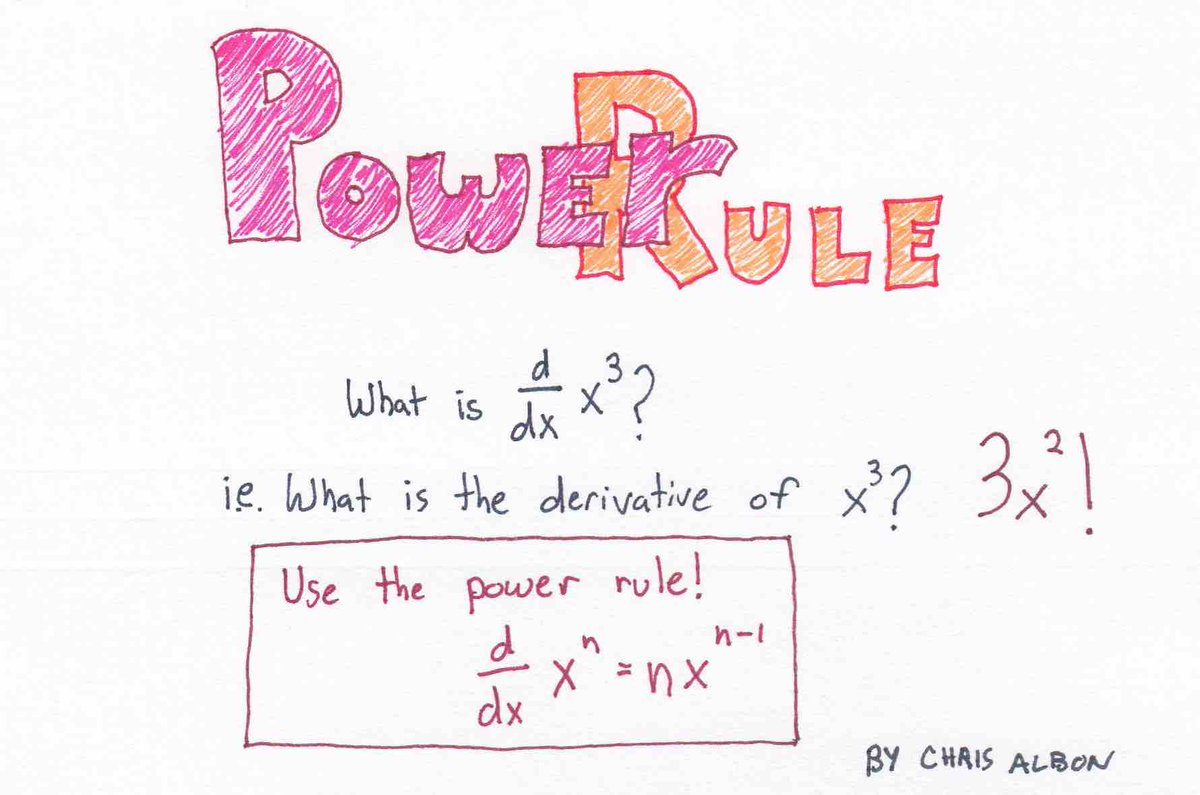 Power Rule
What is d/dx x³?
i.e. What is the derivative of x³? 3x²!
Use the power rule!
d/dx xⁿ = nxⁿ⁻¹
BY CHRIS ALBON